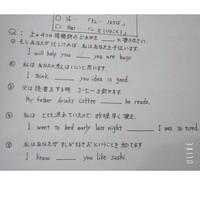 ○ if ― 「もし～ならば」
○ that ― 「～ということ」
Q: 上の4つの接続詞のどれかを ___ に書きなさい。
① もしあなたが忙しければ、私はあなたを手伝います。
I will help you ___ you are busy.
② 私はあなたの考えはいいと思います
I think ___ you idea is good.
③ 父は読書をする時、コーヒーを飲みます
My father drinks coffee ___ he reads.
④ 私は とても疲れていたので、昨晩早く寝た。
I went to bed early last night ___ I was so tired.
⑤ 私はあなたが すしが好きだということを知ってます
I know ___ you like sushi.
ULIKE